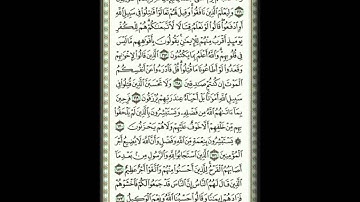 وَلِيَعْلَمَ ٱلَّذِينَ نَافَقُوا۟ وَقِيلَ لَهُمْ تَعَالَوْا۟ قَٰتِلُوا۟ فِى سَبِيلِ ٱللَّهِ
أَوِ ٱدْفَعُوا۟ قَالُوا۟ لَوْ نَعْلَمُ قِتَالًا لَّٱتَّبَعْنَٰكُمْ هُمْ لِلْكُفْرِ
يَوْمَئِذٍ أَقْرَبُ مِنْهُمْ لِلْإِيمَٰنِ يَقُولُونَ بِأَفْوَٰهِهِم مَّا لَيْسَ
فِى قُلُوبِهِمْ وَٱللَّهُ أَعْلَمُ بِمَا يَكْتُمُونَ ١٦٧ ٱلَّذِينَ قَالُوا۟ لِإِخْوَٰنِهِمْ
وَقَعَدُوا۟ لَوْ أَطَاعُونَا مَا قُتِلُوا۟ قُلْ فَٱدْرَءُوا۟ عَنْ أَنفُسِكُمُ
ٱلْمَوْتَ إِن كُنتُمْ صَٰدِقِينَ ١٦٨ وَلَا تَحْسَبَنَّ ٱلَّذِينَ قُتِلُوا۟ فِى
سَبِيلِ ٱللَّهِ أَمْوَٰتًۢا بَلْ أَحْيَآءٌ عِندَ رَبِّهِمْ يُرْزَقُونَ ١٦٩ فَرِحِينَ
بِمَآ ءَاتَىٰهُمُ ٱللَّهُ مِن فَضْلِهِۦ وَيَسْتَبْشِرُونَ بِٱلَّذِينَ لَمْ يَلْحَقُوا۟
بِهِم مِّنْ خَلْفِهِمْ أَلَّا خَوْفٌ عَلَيْهِمْ وَلَا هُمْ يَحْزَنُونَ ١٧٠
۞ يَسْتَبْشِرُونَ بِنِعْمَةٍ مِّنَ ٱللَّهِ وَفَضْلٍ وَأَنَّ ٱللَّهَ لَا يُضِيعُ أَجْرَ
ٱلْمُؤْمِنِينَ ١٧١ ٱلَّذِينَ ٱسْتَجَابُوا۟ لِلَّهِ وَٱلرَّسُولِ مِنۢ بَعْدِ مَآ
أَصَابَهُمُ ٱلْقَرْحُ لِلَّذِينَ أَحْسَنُوا۟ مِنْهُمْ وَٱتَّقَوْا۟ أَجْرٌ عَظِيمٌ ١٧٢
ٱلَّذِينَ قَالَ لَهُمُ ٱلنَّاسُ إِنَّ ٱلنَّاسَ قَدْ جَمَعُوا۟ لَكُمْ فَٱخْشَوْهُمْ
فَزَادَهُمْ إِيمَٰنًا وَقَالُوا۟ حَسْبُنَا ٱللَّهُ وَنِعْمَ ٱلْوَكِيلُ ١٧٣